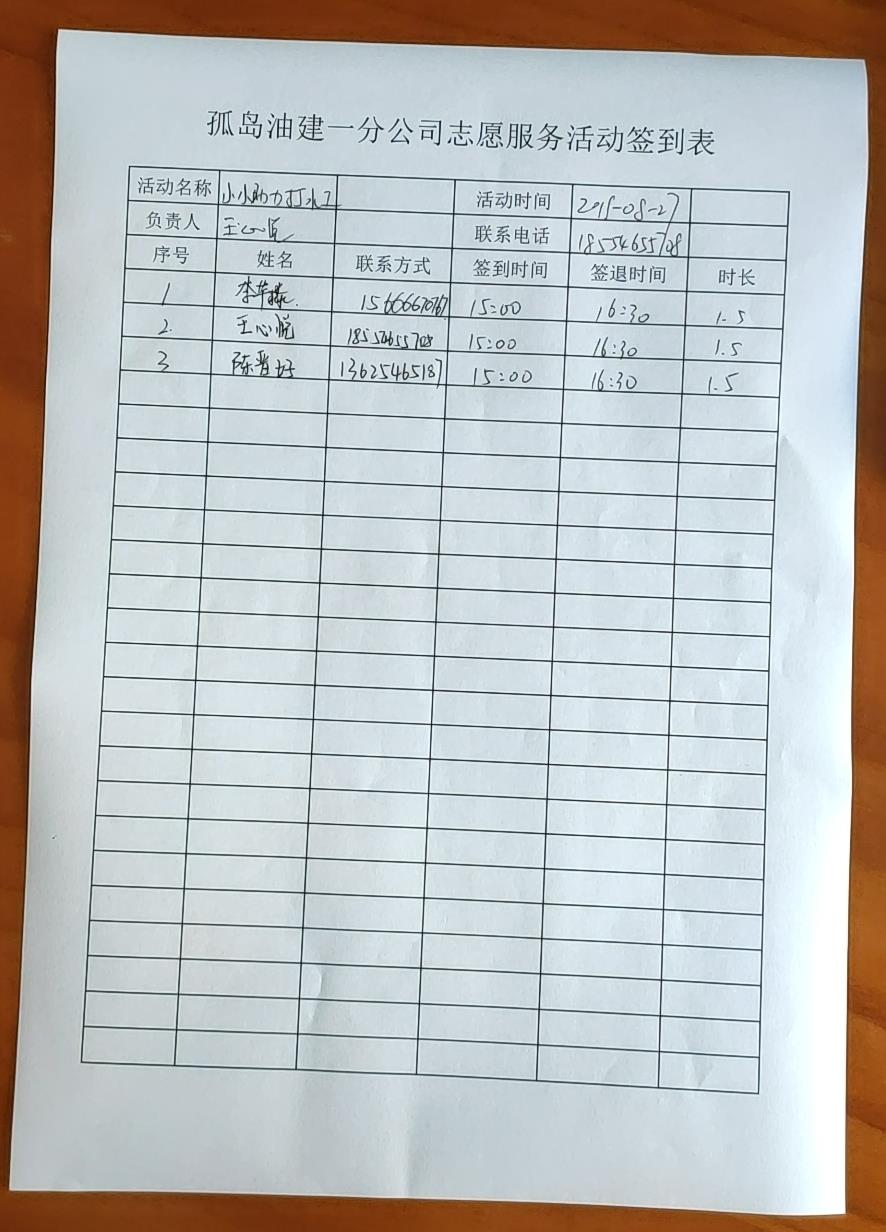 孤岛油建一分公司志愿服务活动签到表
活动名称 小小助力打水工 活动时间 2019-08-27
负责人 王心悦 联系电话 18554655708
序号 姓名 联系方式 签到时间 签退时间 时长
1 李 15666670767 15:00 16:30 1.5
2 王心悦 18554655708 15:00 16:30 1.5
3 陈晋 13625465187 15:00 16:30 1.5